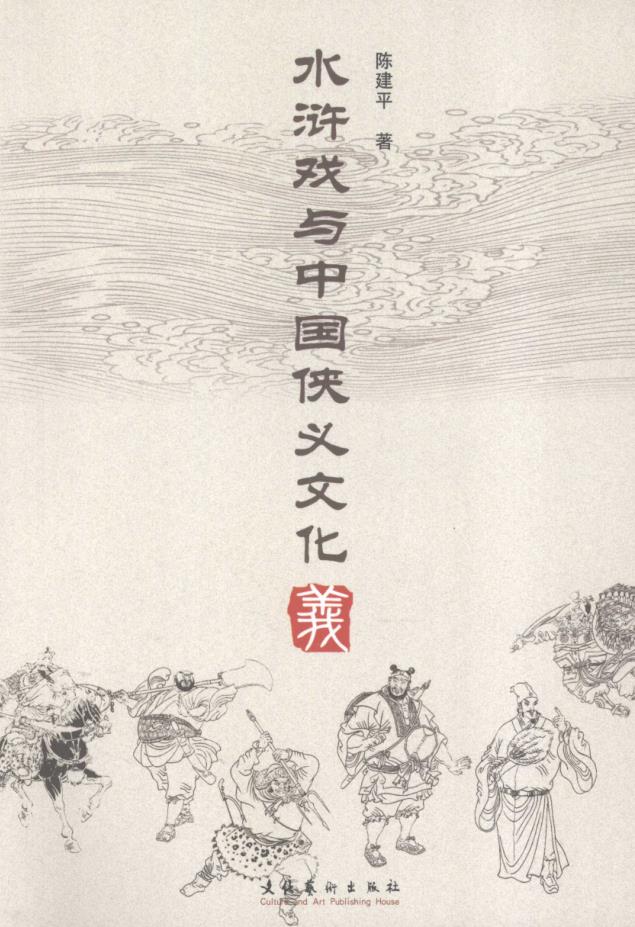 陈建平 著
水浒戏与中国侠义文化
義
文化藝術出版社
Culture and Art Publishing House